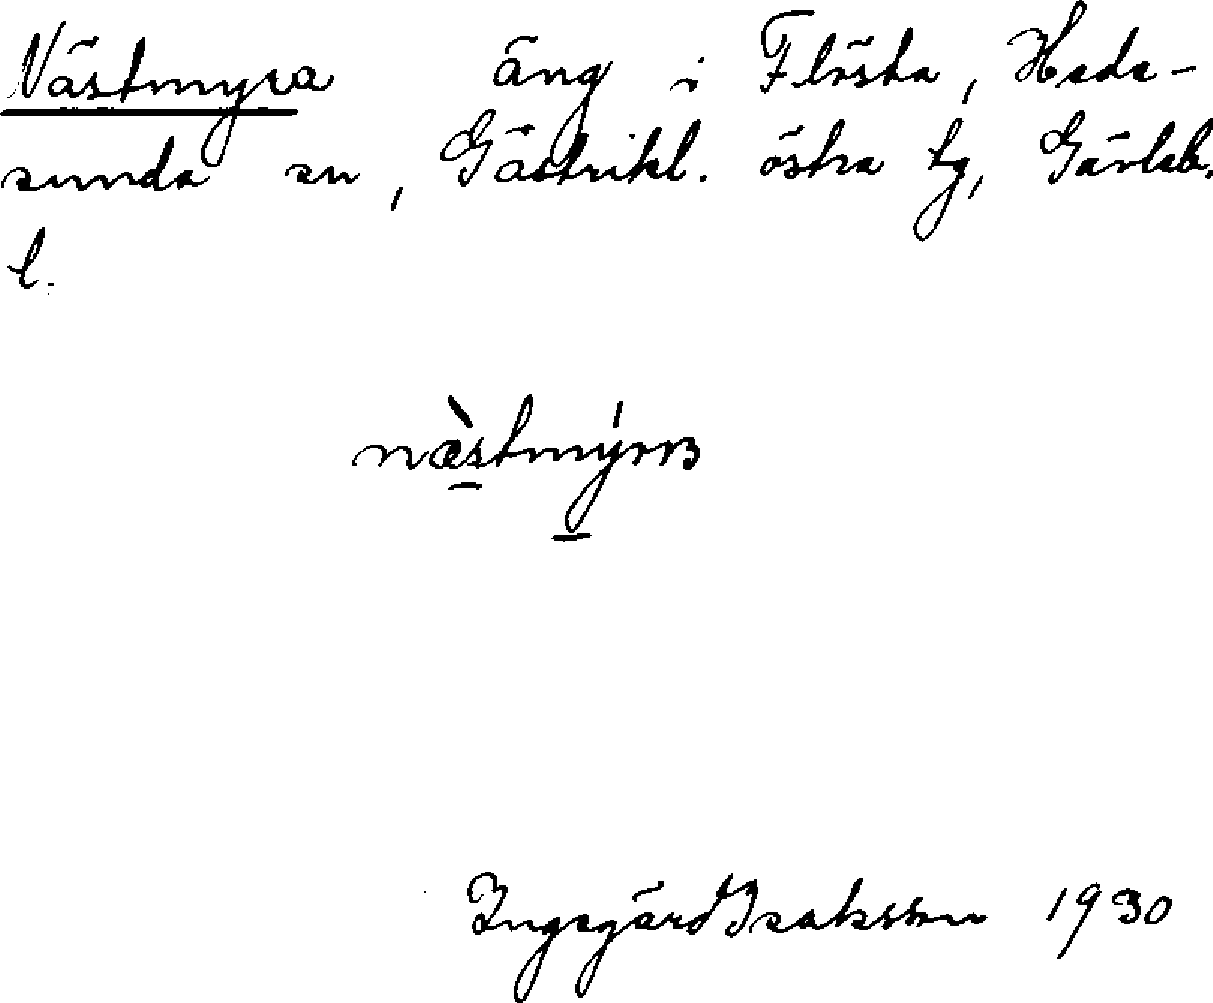 Västmyra äng i Flösta, Hede-
sunda sn, Gästrikl. östra tg, Gävleb.
l.
væ̀stmýrɐ
Ingegärd Isaksson 1930